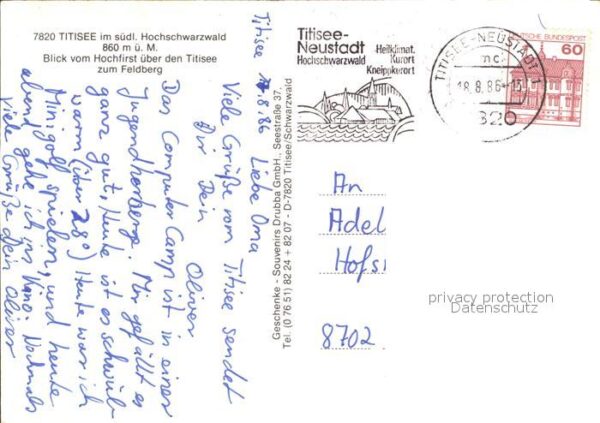 7820 TITISEE im südl. Hochschwarzwald
860 m ü. M.
Blick vom Hochfirst über den Titisee
zum Feldberg
Titisee 8.86
Liebe Oma
Viele Grüße vom Titisee sendet
Dir Dein
Oliver
Das Computer Camp ist in einer
Jugendherberge. Mir gefällt es
ganz gut. Heute ist es schwül-
warm (über 28°) Heute war ich
Minigolf spielen, und heute
abend gehe ich ins Kino. Nochmals
Viele Grüße Dein Oliver
Geschenke - Souvenirs Drubba GmbH., Seestraße 37,
Tel. (0 76 51) 82 24 + 82 07 - D-7820 Titisee/Schwarzwald
Titisee-
Neustadt
Hochschwarzwald
Heilklimat.
Kurort
Kneippkurort
TITISEE-NEUSTADT 1
mc
18.8.86-15
7820
DEUTSCHE BUNDESPOST
60
An
Adel
Hofs
8702
privacy protection
Datenschutz